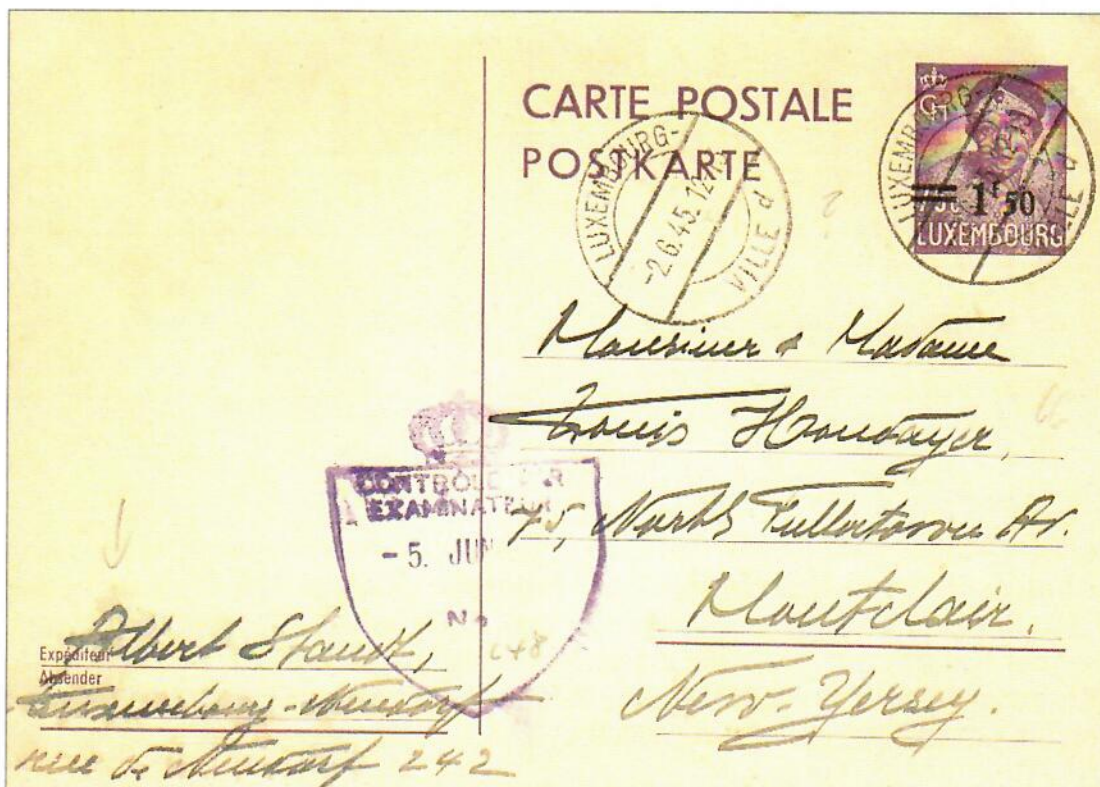 CARTE POSTALE
POSTKARTE
LUXEMBOURG-
-2.6.45.12-
VILLE d
LUXEMBOURG-
VILLE d
1F50
LUXEMBOURG
Monsieur & Madame
Louis
75, North Fullertown Av.
Montclair,
New-Yersey.
CONTRÔLE PAR
EXAMINATEUR
-5. JUN
No
Expéditeur
Absender
Albert
Luxembourg-Neudorf
rue de Neudorf 242